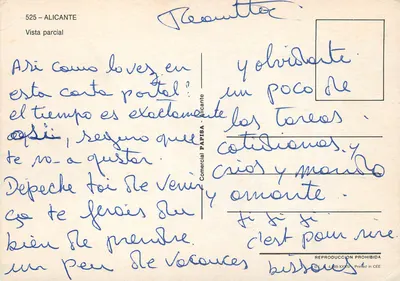 525 - ALICANTE
Vista parcial
Asi como lo ves, en
esta carta portal!
el tiempo es exactamente
aqui, seguro que
te va a gustar.
Dépêche toi de venir
ça te ferais du
bien de prendre
un peu de vacances
Comercial PAPISA - Alicante
y olvidarte
un poco de
las tareas
cotidianas y
crios y marido
y amante.
ji ji ji
c'est pour rire
bissous
REPRODUCCIÓN PROHIBIDA
Printed in CEE